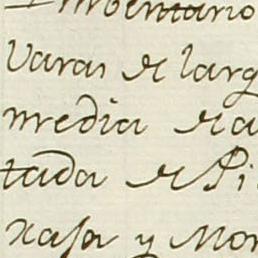 Inventario
Varas de larg
media de a
tada de Pi
xasa y Mon